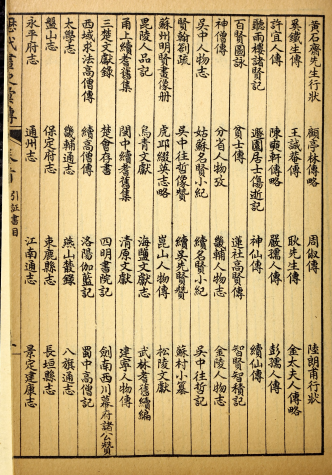 黃石齋先生行狀 顧亭林傳略 周俶傳 陸朗甫行狀
吳鐵生傳 王誠菴傳 耿先生傳 金太夫人傳略
許宜人傳 陳蓃軒傳略 嚴孺人傳 彭孺人傳
聽雨樓諸賢記 遯園居士傷逝記 神仙傳 續仙傳
百賢圖詠 貧士傳 蓮社高賢傳 智賢智積記
神僧傳 分省人物攷 畿輔人物志 金陵人物志
吳中人物志 姑蘇名賢小紀 續名賢小紀 吳中往哲記
賢翰劄疏 吳中往哲像贊 續吳先賢贊 蘇村小纂
蘇州明賢畫像册 虎邱綴英志略 崑山人物傳 松陵文獻
毘陵人品記 烏青文獻 海鹽文獻 武林耆舊續編
甬上續耆舊集 閩中續耆舊集 清原文獻 建寧人物傳
三楚文獻錄 楚會存書 四明書院記 劍南西川幕府諸公贊
西域求法高僧傳 續高僧傳 洛陽伽藍記 蜀中高僧記
太學志 畿輔通志 燕山叢錄 八旗通志
盤山志 保定府志 束鹿縣志 長垣縣志
永平府志 通州志 江南通志 景定建康志
歷代畫史彙傳 卷首 引証書目